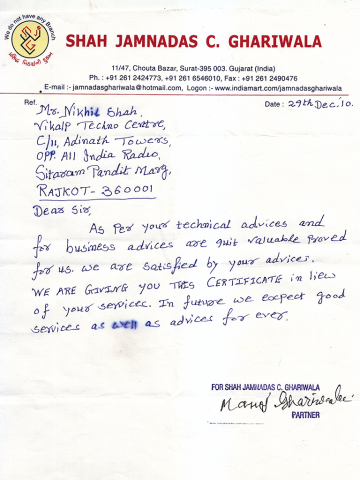 We do not have any Branch
SHAH JAMNADAS C. GHARIWALA
11/47, Chouta Bazar, Surat-395 003. Gujarat (India)
Ph. : +91 261 2424773, +91 261 6546010, Fax : +91 261 2490476
E-mail :- jamnadasghariwala@hotmail.com, Logon :- www.indiamart.com/jamnadasghariwala
Ref. Date : 29th Dec, 10.
Mr. Nikhil Shah,
Vikalp Techno Centre,
C/11, Adinath Towers,
OPP. All India Radio,
Sitaram Pandit Marg,
RAJKOT- 360001
Dear Sir,
As per your technical advices and
for business advices are quit valuable proved
for us. we are satisfied by your advices.
WE ARE GIVING YOU THIS CERTIFICATE in liew
of your services. In future we expect good
services as well as advices for ever.
FOR SHAH JAMNADAS C. GHARIWALA
Manoj Ghariwala
PARTNER